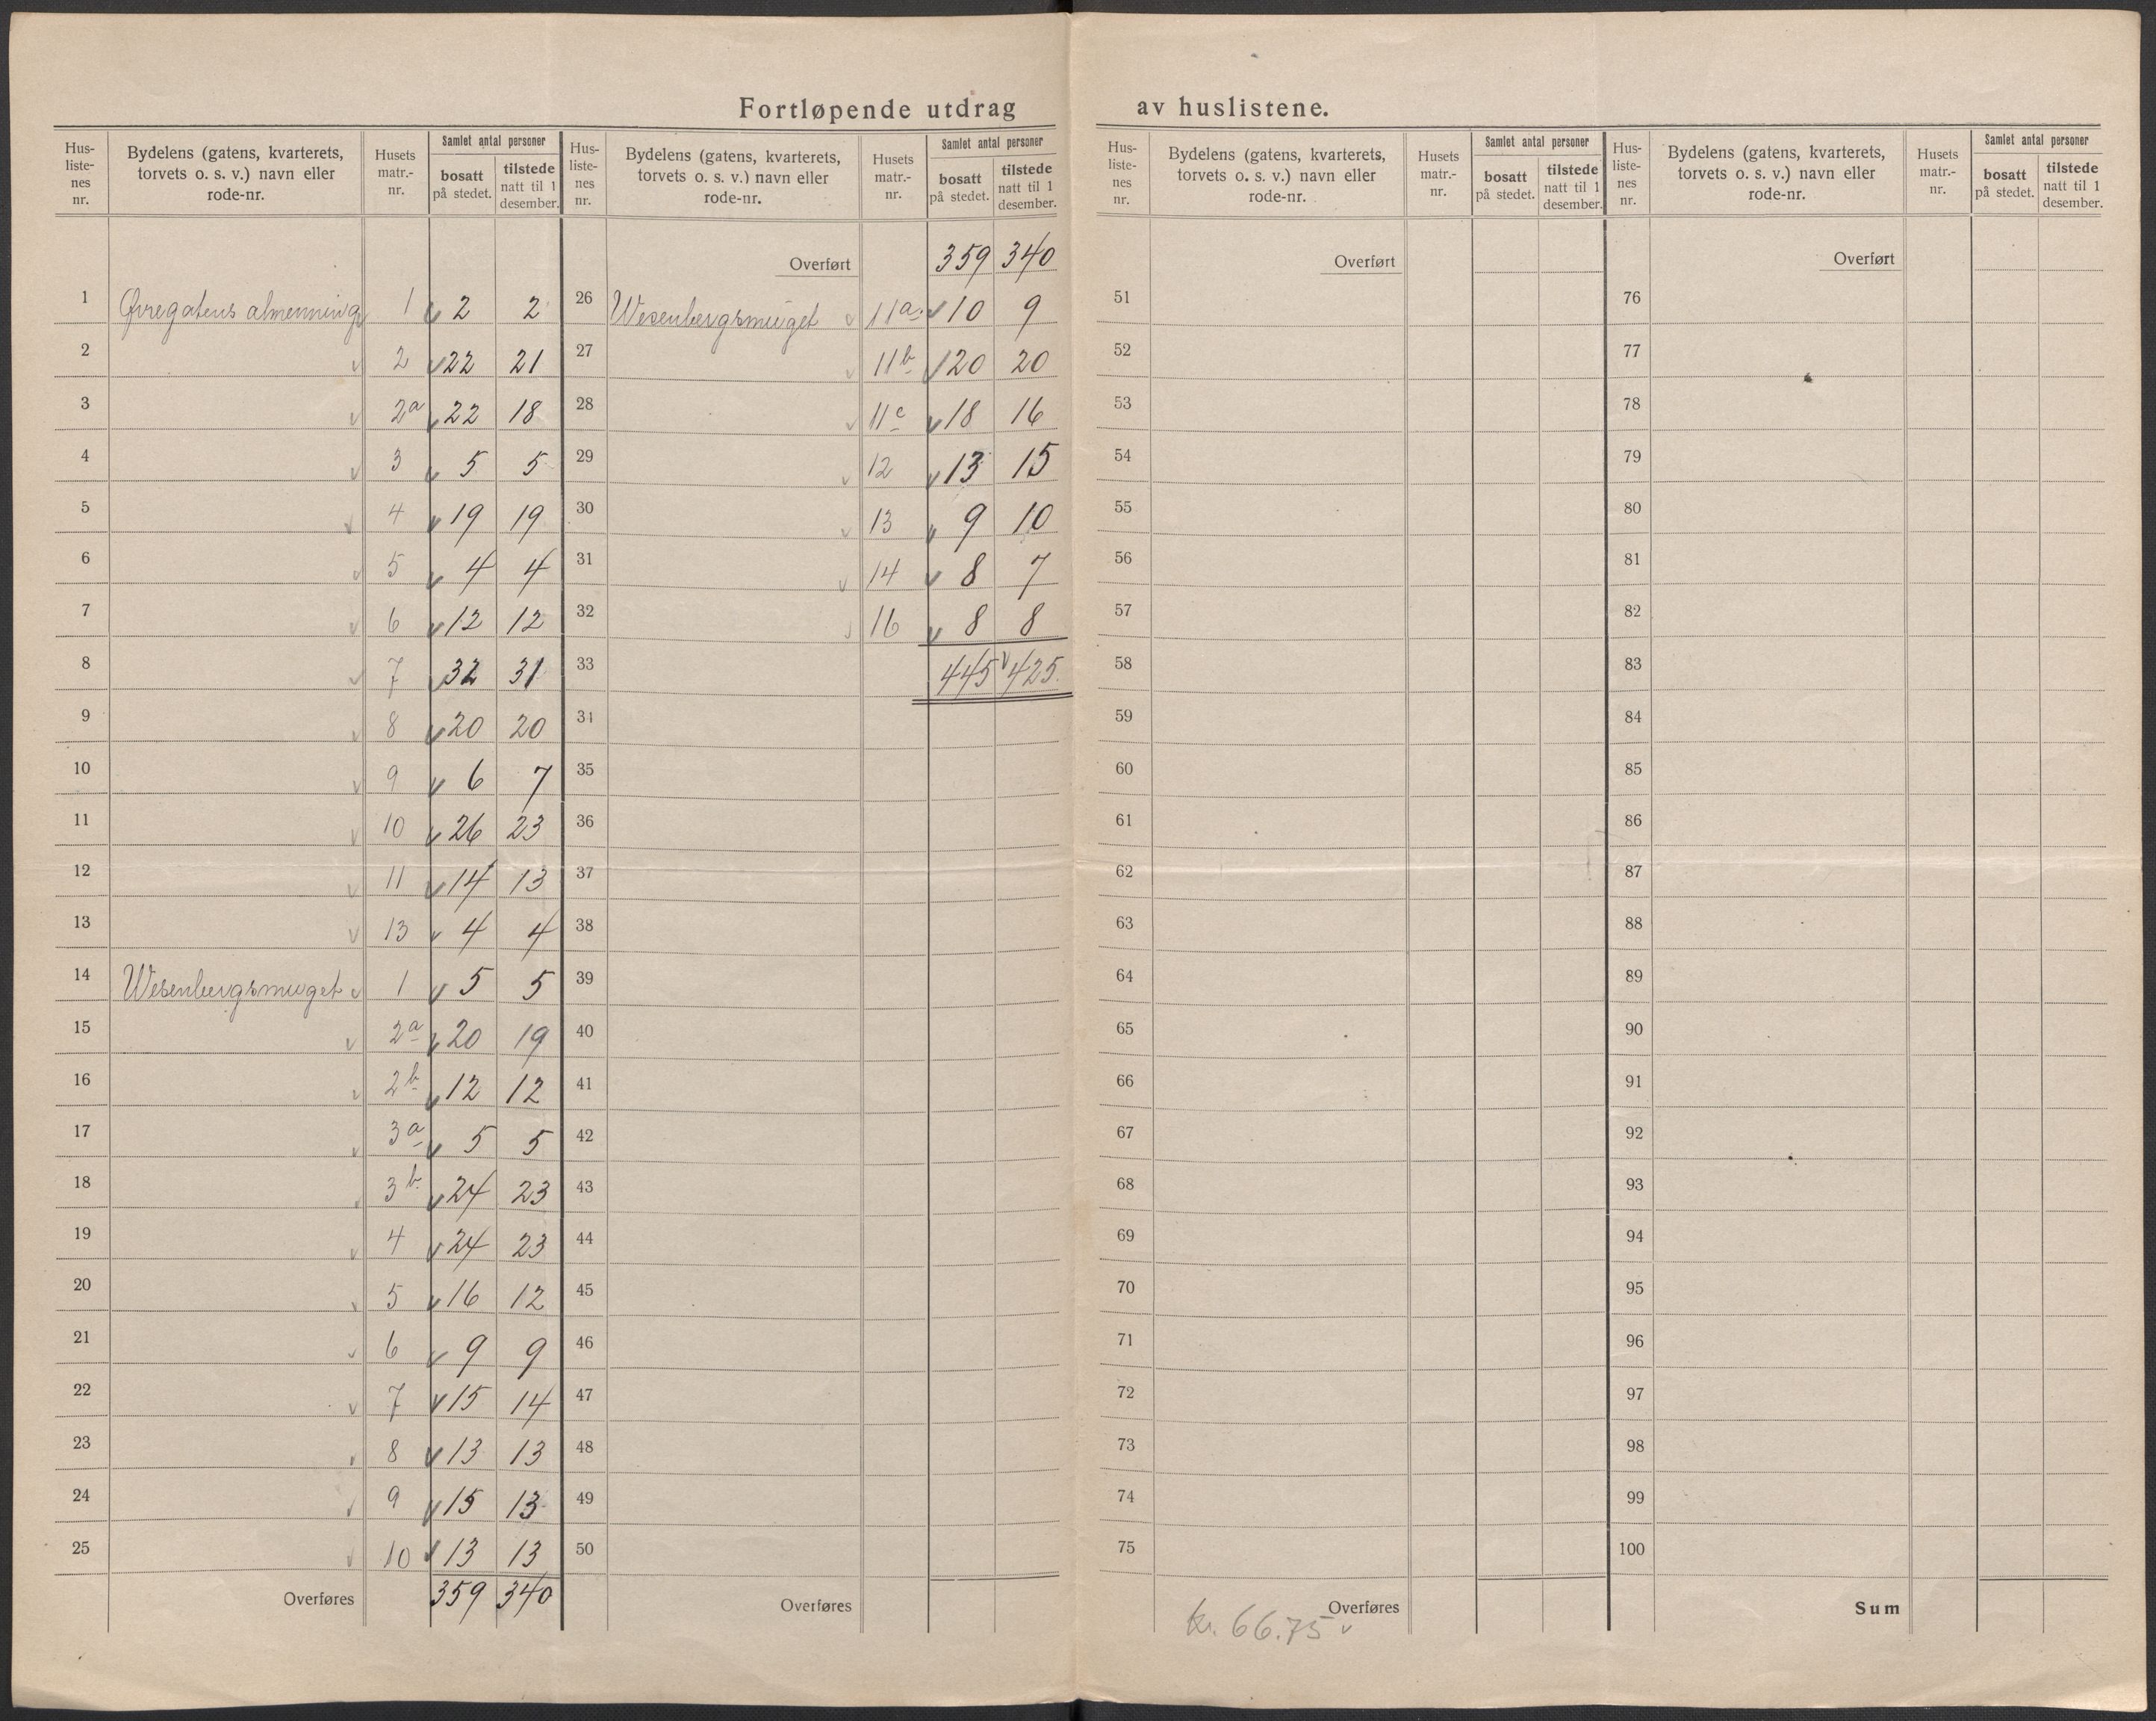 Fortløpende utdrag av huslistene.
Hus-liste-nes nr. | Bydelens (gatens, kvarterets, torvets o. s. v.) navn eller rode-nr. | Husets matr.-nr. | Samlet antal personer bosatt på stedet. | tilstede natt til 1 desember.
1 Øvregatens almenning 1 2 2
2 2 22 21
3 2a 22 18
4 3 5 5
5 4 19 19
6 5 4 4
7 6 12 12
8 7 32 31
9 8 20 20
10 9 6 7
11 10 26 23
12 11 14 13
13 13 4 4
14 Wesenbergsmuget 1 5 5
15 2a 20 19
16 2b 12 12
17 3a 5 5
18 3b 24 23
19 4 24 23
20 5 16 12
21 6 9 9
22 7 15 14
23 8 13 13
24 9 15 13
25 10 13 13
Overføres 359 340
Hus-liste-nes nr. | Bydelens (gatens, kvarterets, torvets o. s. v.) navn eller rode-nr. | Husets matr.-nr. | Samlet antal personer bosatt på stedet. | tilstede natt til 1 desember.
Overført 359 340
26 Wesenbergsmuget 11a 10 9
27 11b 20 20
28 11c 18 16
29 12 13 15
30 13 9 10
31 14 8 7
32 16 8 8
33 445 425
34
35
36
37
38
39
40
41
42
43
44
45
46
47
48
49
50
Overføres
Hus-liste-nes nr. | Bydelens (gatens, kvarterets, torvets o. s. v.) navn eller rode-nr. | Husets matr.-nr. | Samlet antal personer bosatt på stedet. | tilstede natt til 1 desember.
Overført
51
52
53
54
55
56
57
58
59
60
61
62
63
64
65
66
67
68
69
70
71
72
73
74
75
Overføres
kr. 66.75
Hus-liste-nes nr. | Bydelens (gatens, kvarterets, torvets o. s. v.) navn eller rode-nr. | Husets matr.-nr. | Samlet antal personer bosatt på stedet. | tilstede natt til 1 desember.
Overført
76
77
78
79
80
81
82
83
84
85
86
87
88
89
90
91
92
93
94
95
96
97
98
99
100
Sum